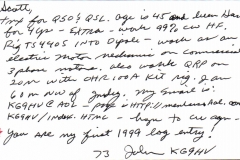 Scott,
Tnx for QSO & QSL. Age is 45 and been Ham
for 4 yrs - EXTRA - work 99% CW HF.
Rig TS440S INTO Dipole - work as an
electric motor mechanic on commercial
3 phase motors. also work QRP on
20m with OHR 100A Kit rig. I am
60 m NW of Indy. My email is:
KG9HV@AOL - page is HTTP://members.aol.com
KG9HV/index.HTML - hope to cu agn -
You are my first 1999 log entry!
73 John KG9HV